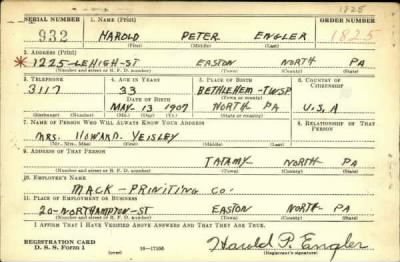 1825
SERIAL NUMBER 1. NAME (Print) ORDER NUMBER
932 HAROLD PETER ENGLER 1825
(First) (Middle) (Last)
2. ADDRESS (Print)
* 1225 LEHIGH-ST EASTON NORTH PA
(Number and street or R. F. D. number) (Town) (County) (State)
3. TELEPHONE 4. AGE IN YEARS 5. PLACE OF BIRTH 6. COUNTRY OF CITIZENSHIP
3117 33 BETHLEHEM-TWSP
DATE OF BIRTH (Town or county)
MAY 13 1907 NORTH PA U.S.A
(Exchange) (Number) (Mo.) (Day) (Yr.) (State or country)
7. NAME OF PERSON WHO WILL ALWAYS KNOW YOUR ADDRESS 8. RELATIONSHIP OF THAT PERSON
MRS. HOWARD. YEISLEY
(Mr., Mrs., Miss) (First) (Middle) (Last)
9. ADDRESS OF THAT PERSON
TATAMY NORTH PA
(Number and street or R. F. D. number) (Town) (County) (State)
10. EMPLOYER'S NAME
MACK-PRINITING CO.
11. PLACE OF EMPLOYMENT OR BUSINESS
20-NORTHAMPTON-ST EASTON NORTH PA
(Number and street or R. F. D. number) (Town) (County) (State)
I AFFIRM THAT I HAVE VERIFIED ABOVE ANSWERS AND THAT THEY ARE TRUE.
REGISTRATION CARD
D. S. S. Form 1 (over) 16-17105 Harold P. Engler
(Registrant's signature)